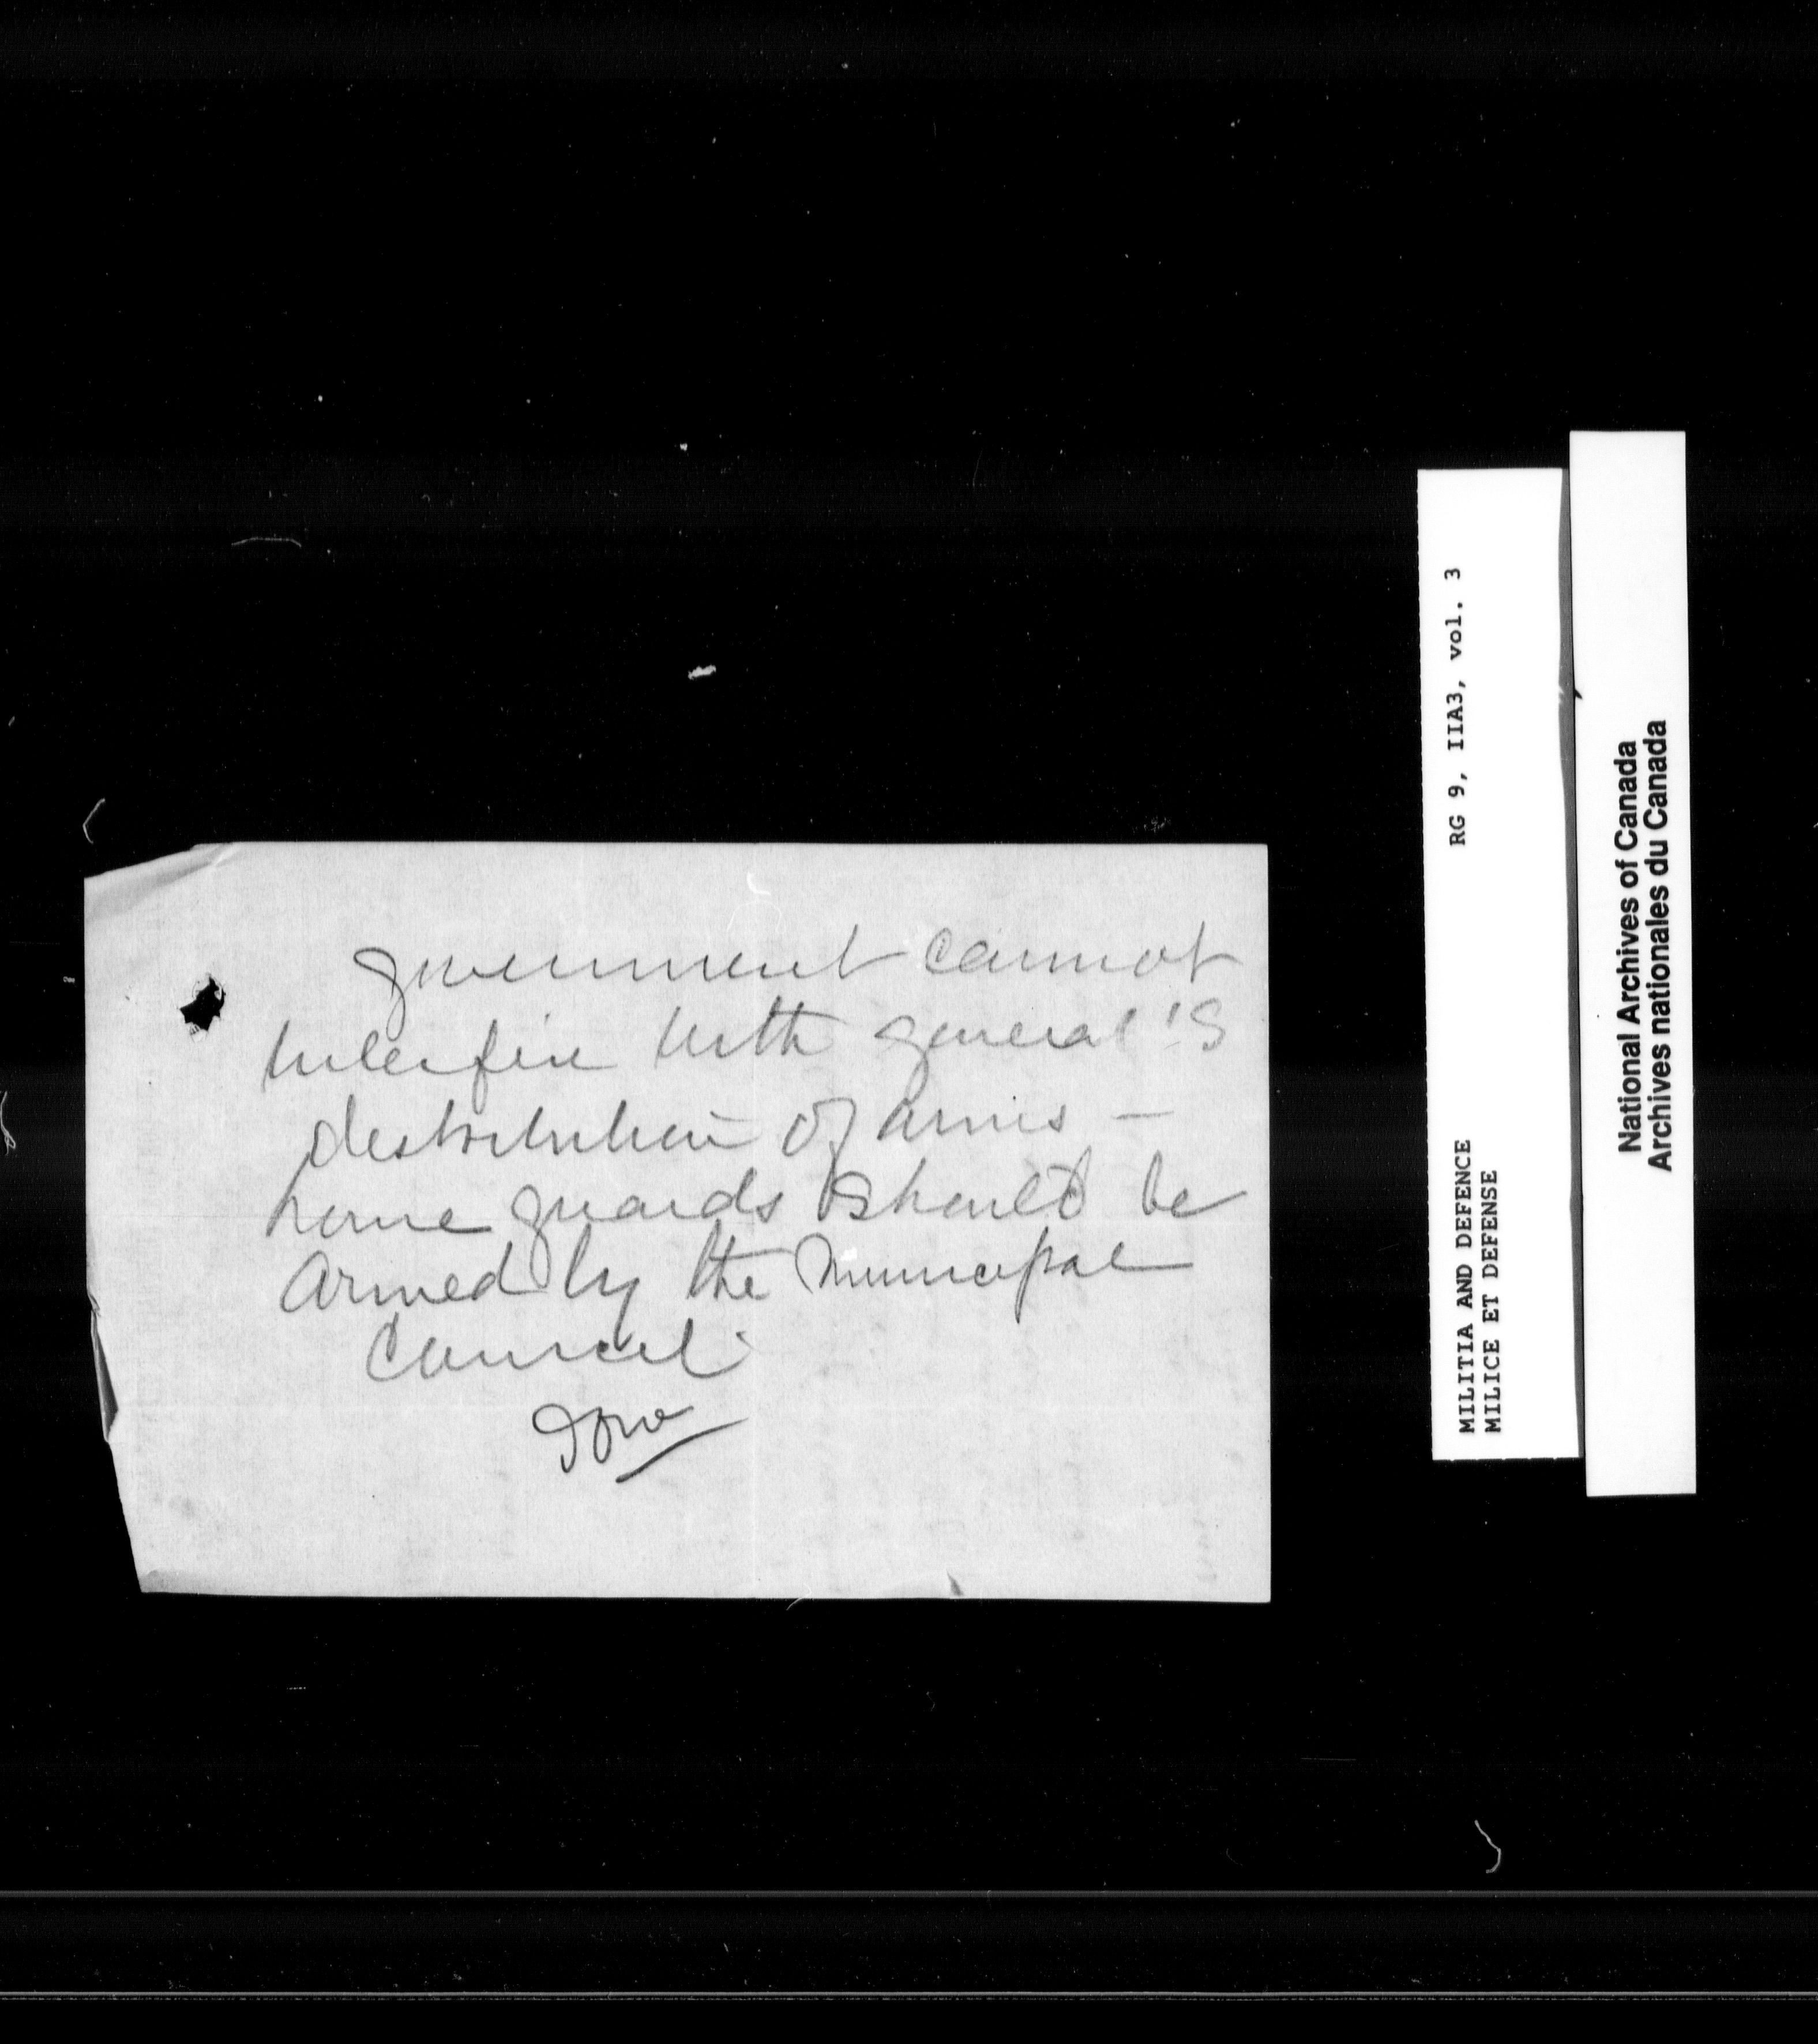 government cannot
interfere with general's
distribution of arms —
home guards should be
armed by the municipal
council.
RG 9, IIA3, vol. 3
MILITIA AND DEFENCE
MILICE ET DEFENSE
National Archives of Canada
Archives nationales du Canada